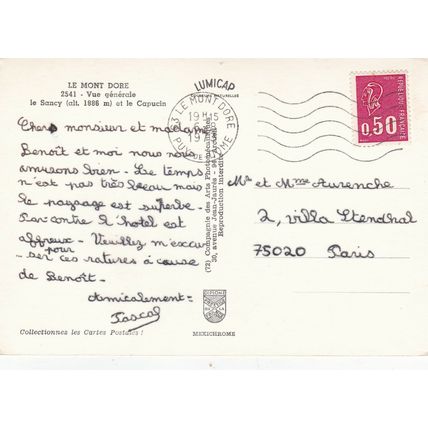 LE MONT DORE
2541 - Vue générale
le Sancy (alt. 1886 m) et le Capucin
LUMICAP
63 LE MONT DORE
19H15
PUY DE DOME
REPUBLIQUE FRANÇAISE
0,50
Chers monsieur et madame
Benoît et moi nous nous
amusons bien - Le temps
n'est pas très beau mais
le paysage est superbe -
Par contre l'hôtel est
affreux - Veuillez m'excu
pour
- ser ces ratures à cause
de Benoît -
Amicalement =
Pascal
(72) Compagnie des Arts Photomécaniques
50, avenue Jean-Jaurès - 94-Arcueil
Reproduction interdite
Mr et Mme Aurenche
2, villa Stendhal
75020 Paris
Collectionnez les Cartes Postales !
MEXICHROME